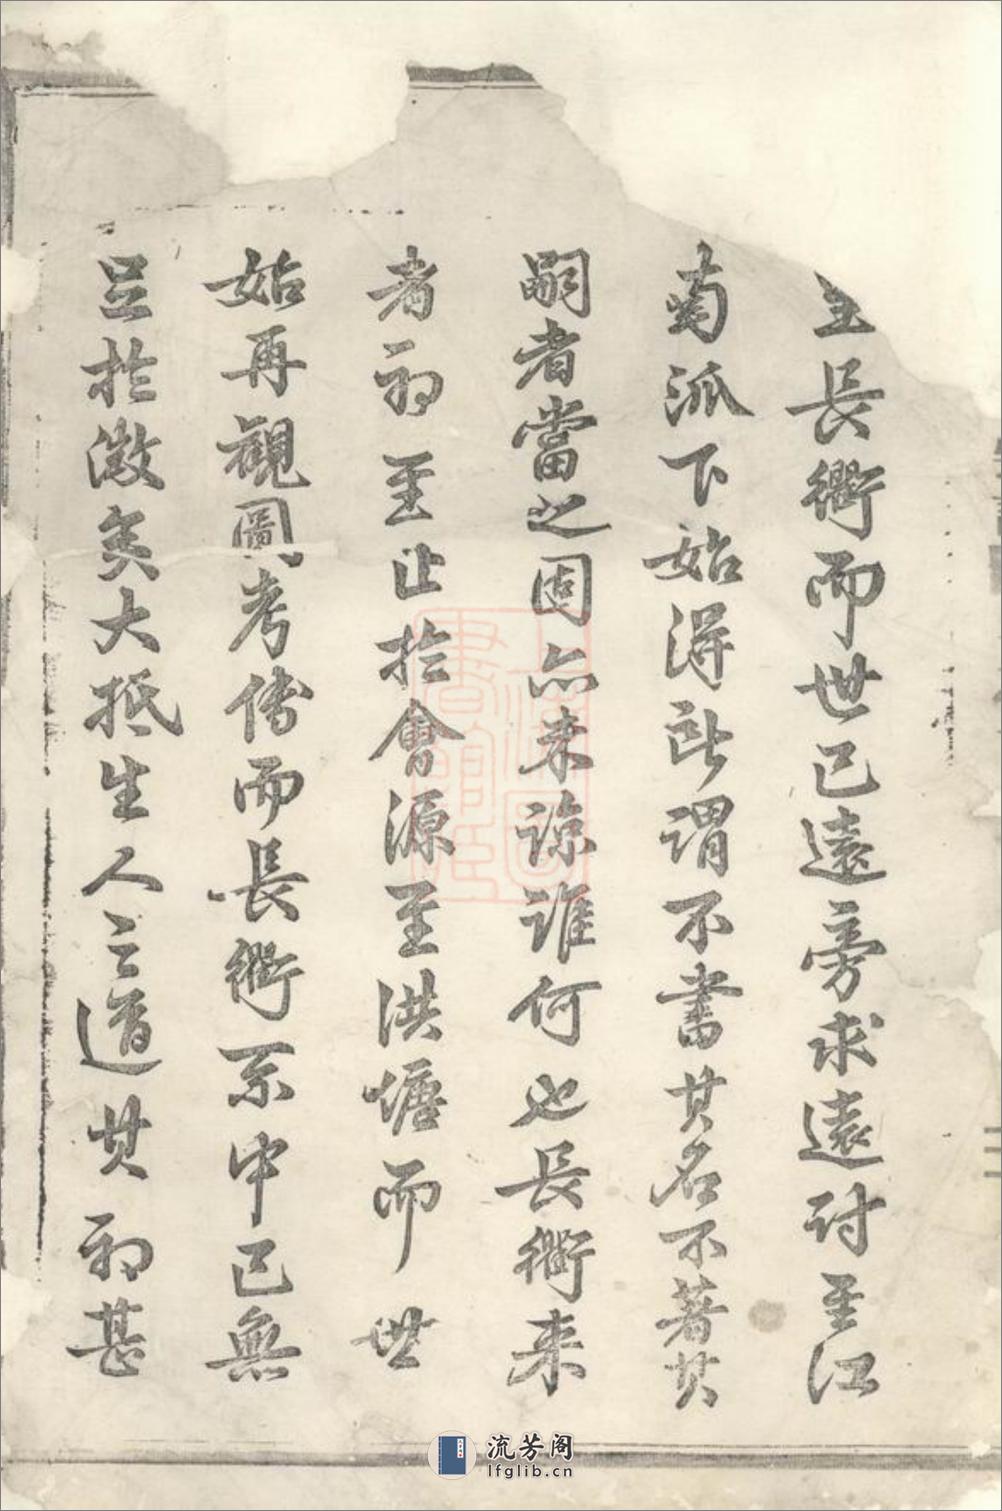 至長衖而世已遠旁求遠討至江
南派下始得此謂不書其名不著其
嗣者當之固亦未諒誰何也長衖来
者初至止於會源至洪塘而世
始再觀圖考傳而長衖系中已無
足於徵矣大抵生人之道其初甚
流芳阁
lfglib.cn